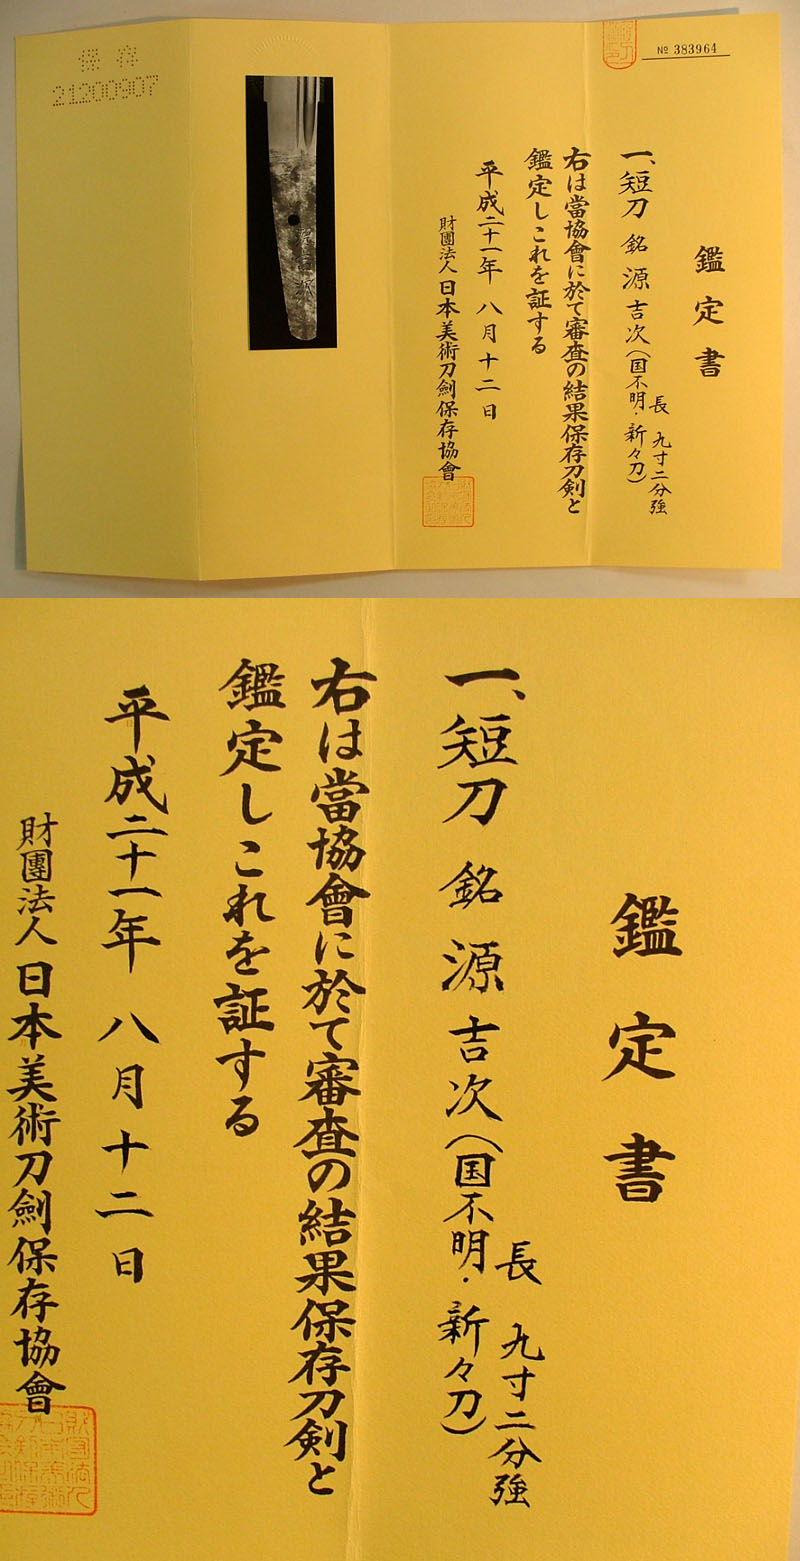 保存
21200907
№ 383964
鑑定書
一、短刀 銘 源吉次(国不明・新々刀)
長 九寸二分強
右は當協會に於て審査の結果保存刀剣と
鑑定しこれを証する
平成二十一年 八月十二日
財團法人 日本美術刀劍保存協會
源吉次
鑑定書
一、短刀 銘 源吉次(国不明・新々刀)
長 九寸二分強
右は當協會に於て審査の結果保存刀剣と
鑑定しこれを証する
平成二十一年 八月十二日
財團法人 日本美術刀劍保存協會